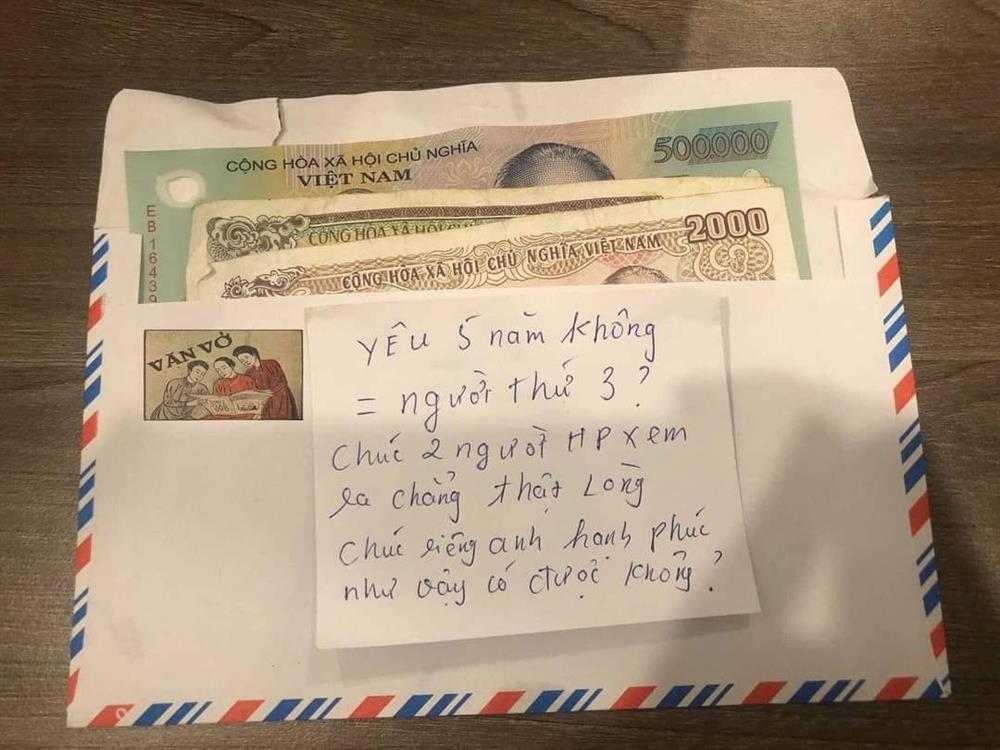 CỘNG HÒA XÃ HỘI CHỦ NGHĨA
VIỆT NAM
500.000
EB 16439
CỘNG HÒA XÃ HỘI CHỦ
2000
CỘNG HÒA XÃ HỘI CHỦ NGHĨA VIỆT NAM
VĂN VỞ
YÊU 5 năm không
= người thứ 3 ?
Chúc 2 người HP xem
ra chẳng thật Lòng
Chúc riêng anh hạnh phúc
như vậy có được không ?